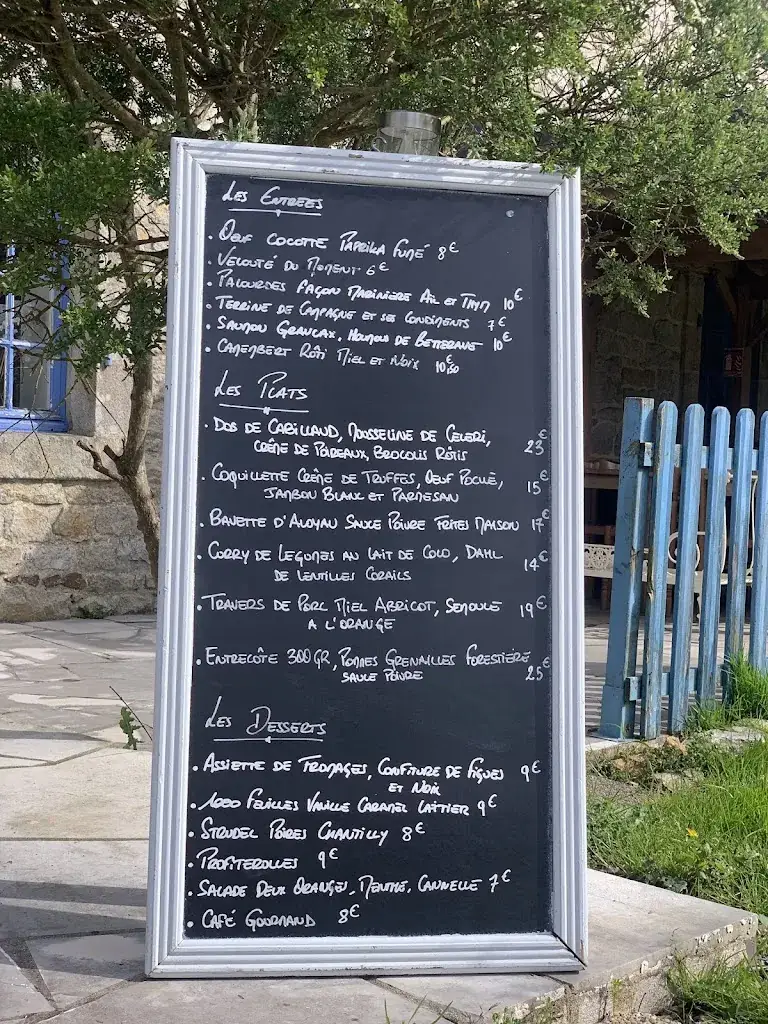 Les Entrees
. Oeuf cocotte Paprika Fumé 8€
. Velouté du Moment 6€
. Palourdes façon Marinière Ail et Thym 10€
. Terrine de Campagne et ses Condiments 7€
. Saumon Gravlax, Houmous de Betterave 10€
. Camembert Rôti Miel et Noix 10€50
Les Plats
. Dos de Cabillaud, Mousseline de Celeri,
Crème de Poireaux, Brocolis Rôtis 23€
. Coquillette Crème de Truffes, Oeuf Poché,
Jambon Blanc et Parmesan 15€
. Bavette d'Aloyau Sauce Poivre Frites Maison 17€
. Curry de Legumes au Lait de Coco, Dahl
de Lentilles Corails 14€
. Travers de Porc Miel Abricot, Semoule
a l'orange 19€
. Entrecôte 300gr, Pommes Grenailles Forestière
Sauce Poivre 25€
Les Desserts
. Assiette de Fromages, Confiture de Figues 9€
et Noix
. 1000 Feuilles Vanille Caramel Laitier 9€
. Strudel Poires Chantilly 8€
. Profiterolles 9€
. Salade Deux Oranges, Menthe, Cannelle 7€
. Café Gourmand 8€